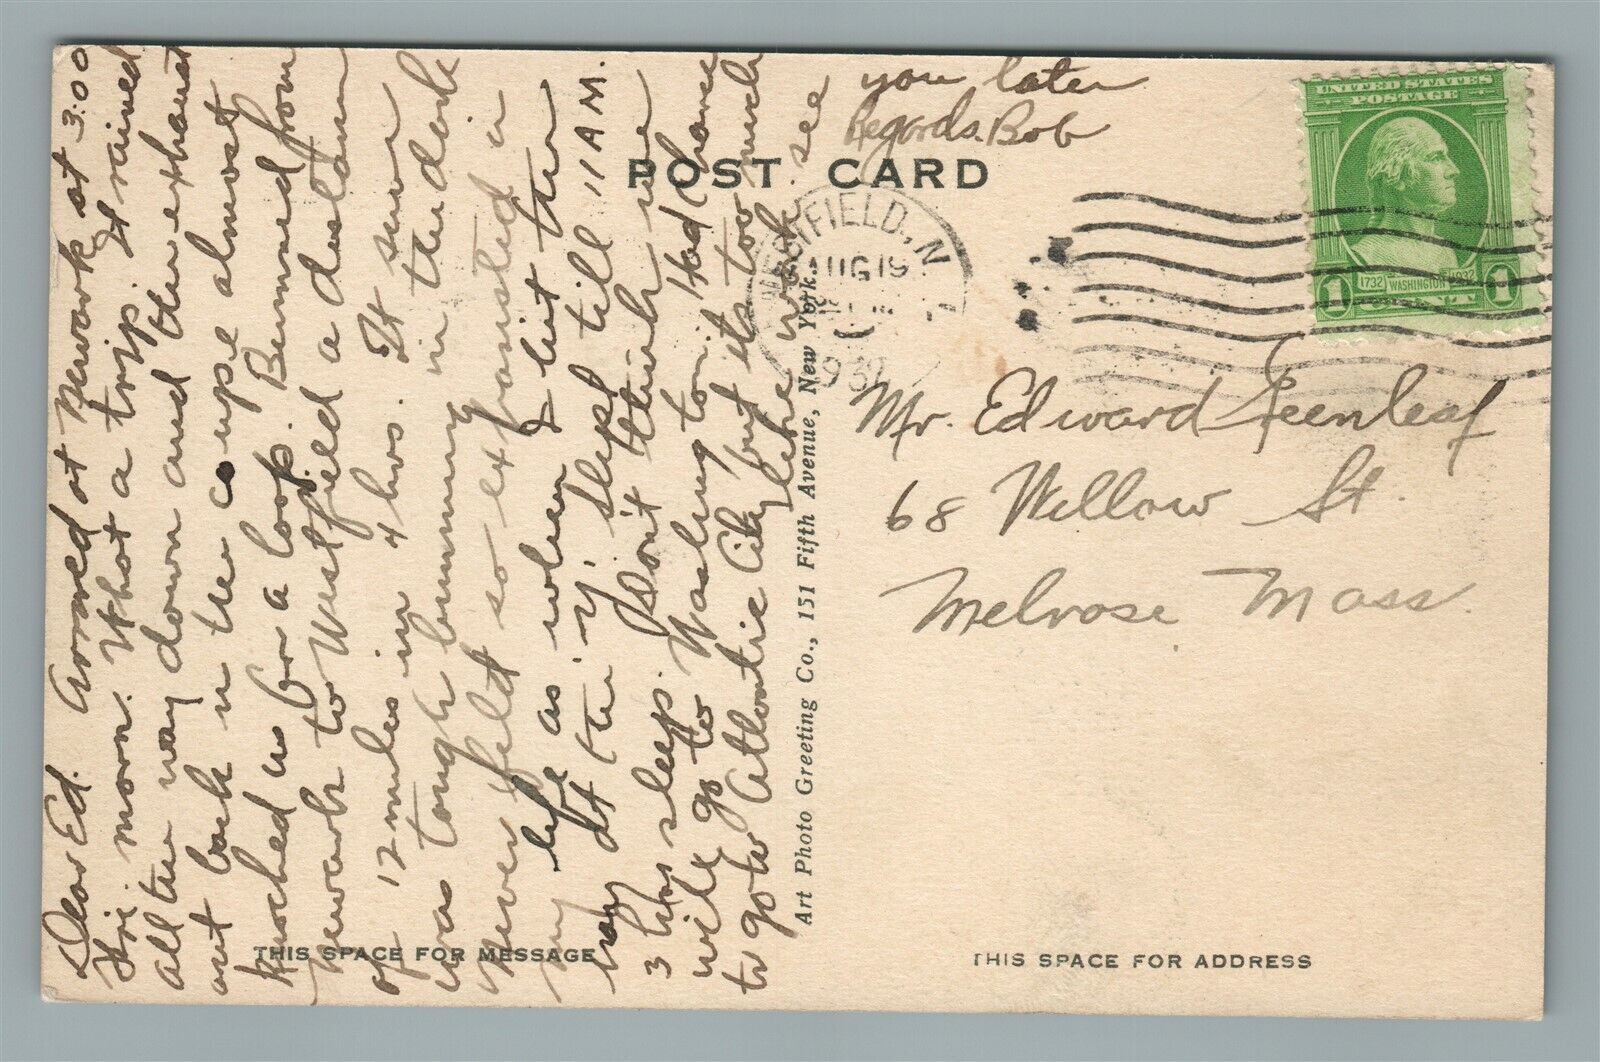 Dear Ed. Arrived at Newark at 3:00
Fri. morn. What a trip. It rained
all the way down and the exhaust
out back in the coupe almost
knocked us for a loop. Bummed from
Newark to Westfield a distance
of 12 miles in 4 hrs. It sure
was tough bumming in the dark
Never felt so exhausted in
my life as when I hit the
hay. At the Y. slept till 11 A M.
3 hrs sleep. Don't think we
will go to Washington. Had chance
to go to Atlantic City but its too much
like work. see
you later
Regards. Bob
POST CARD
FIELD, N
AUG 19
193
UNITED STATES
POSTAGE
1732 WASHINGTON 1932
1 CENT 1
Mr. Edward Greenleaf
68 Willow St
Melrose Mass.
Art Photo Greeting Co., 151 Fifth Avenue, New York.
THIS SPACE FOR MESSAGE
THIS SPACE FOR ADDRESS